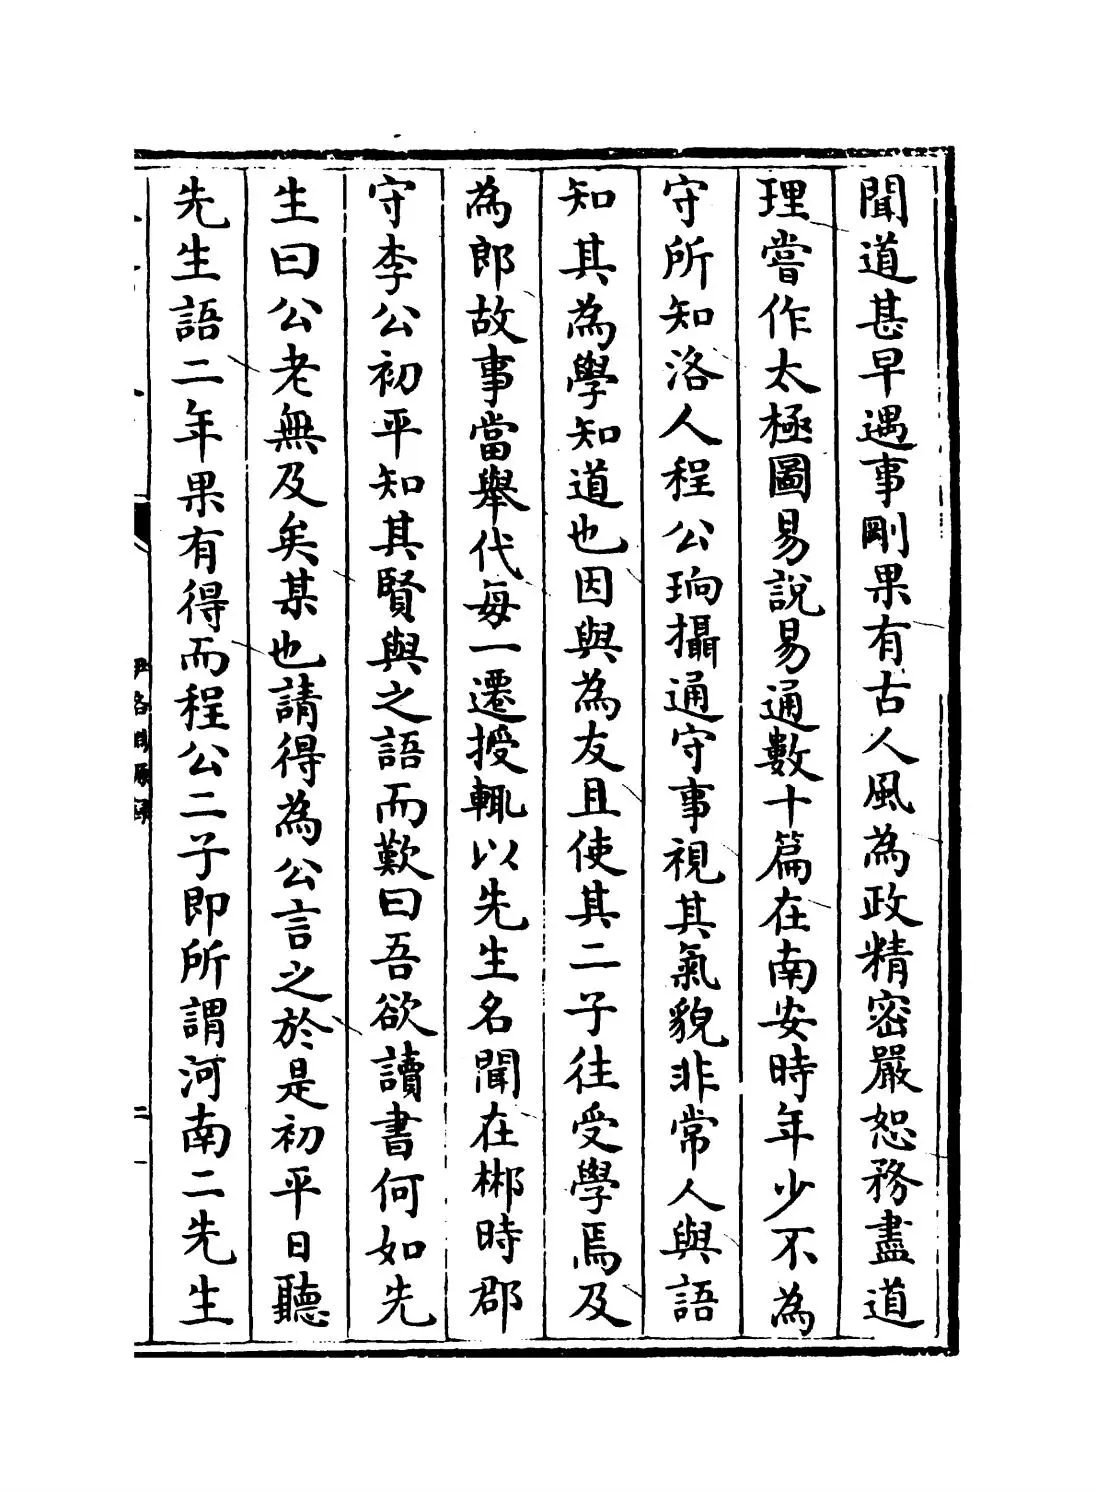 聞道甚早遇事剛果有古人風為政精密嚴恕務盡道
理嘗作太極圖易說易通數十篇在南安時年少不為
守所知洛人程公珦攝通守事視其氣貌非常人與語
知其為學知道也因與為友且使其二子往受學焉及
為郎故事當舉代每一遷授輒以先生名聞在郴時郡
守李公初平知其賢與之語而歎曰吾欲讀書何如先
生曰公老無及矣某也請得為公言之於是初平日聽
先生語二年果有得而程公二子即所謂河南二先生